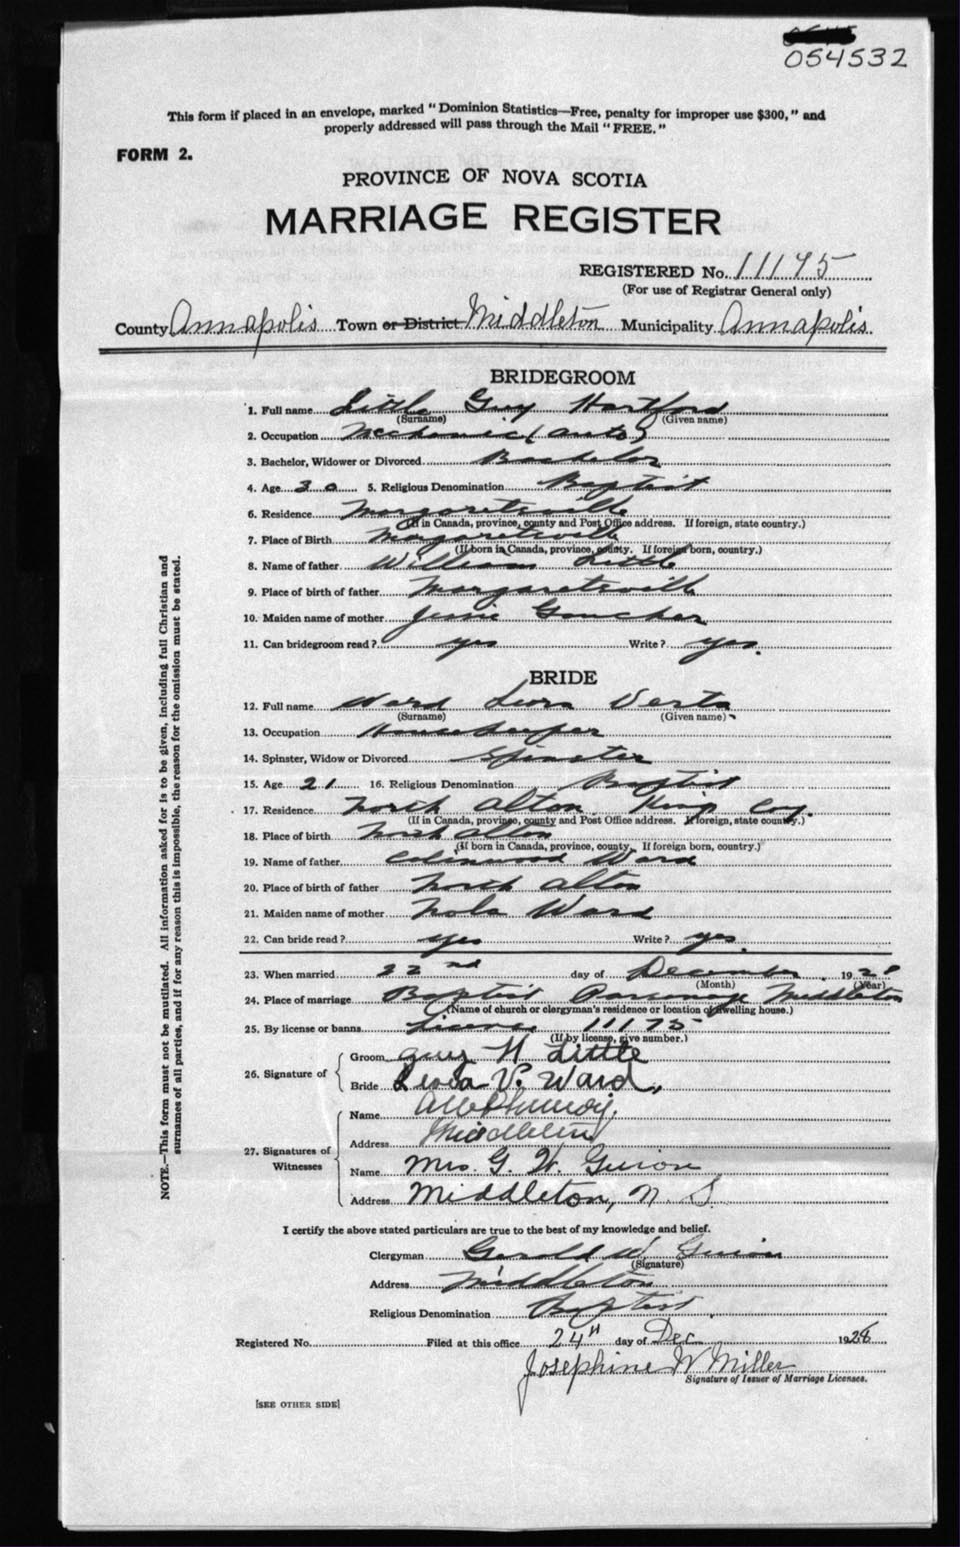 054532
This form if placed in an envelope, marked "Dominion Statistics—Free, penalty for improper use $300," and
properly addressed will pass through the Mail "FREE."
FORM 2.
PROVINCE OF NOVA SCOTIA
MARRIAGE REGISTER
REGISTERED No. 11175
(For use of Registrar General only)
County Annapolis Town or District Middleton Municipality Annapolis.
BRIDEGROOM
1. Full name Little Guy Hartford
(Surname) (Given name)
2. Occupation Mechanic (auto)
3. Bachelor, Widower or Divorced Bachelor
4. Age 30 5. Religious Denomination Baptist
6. Residence Margaretsville
(If in Canada, province, county and Post Office address. If foreign, state country.)
7. Place of Birth Margaretsville
(If born in Canada, province, county. If foreign born, country.)
8. Name of father William Little
9. Place of birth of father Margaretsville
10. Maiden name of mother Jessie Goucher
11. Can bridegroom read? yes Write? yes.
BRIDE
12. Full name Ward Leora Verta
(Surname) (Given name)
13. Occupation Housekeeper
14. Spinster, Widow or Divorced Spinster
15. Age 21 16. Religious Denomination Baptist
17. Residence North Alton Kings Coy.
(If in Canada, province, county and Post Office address. If foreign, state country.)
18. Place of birth North Alton
(If born in Canada, province, county. If foreign born, country.)
19. Name of father Ward
20. Place of birth of father North Alton
21. Maiden name of mother Nola Ward
22. Can bride read? yes Write? yes.
23. When married 22nd day of December, 1928
(Month) (Year)
24. Place of marriage Baptist Parsonage Middleton
(Name of church or clergyman's residence or location of dwelling house.)
25. By license or banns License 11175
(If by license, give number.)
26. Signature of
Groom Guy H Little
Bride Leora V. Ward,
27. Signatures of Witnesses
Name
Address Middleton
Name Mrs. G. W. Guion
Address Middleton, N. S.
I certify the above stated particulars are true to the best of my knowledge and belief.
Clergyman Gerald W. Guion
(Signature)
Address Middleton
Religious Denomination Baptist.
Registered No. Filed at this office 24th day of Dec 1928
Josephine W Miller
Signature of Issuer of Marriage Licenses.
[SEE OTHER SIDE]
NOTE.—This form must not be mutilated. All information asked for is to be given, including full Christian and
surnames of all parties, and if for any reason this is impossible, the reason for the omission must be stated.